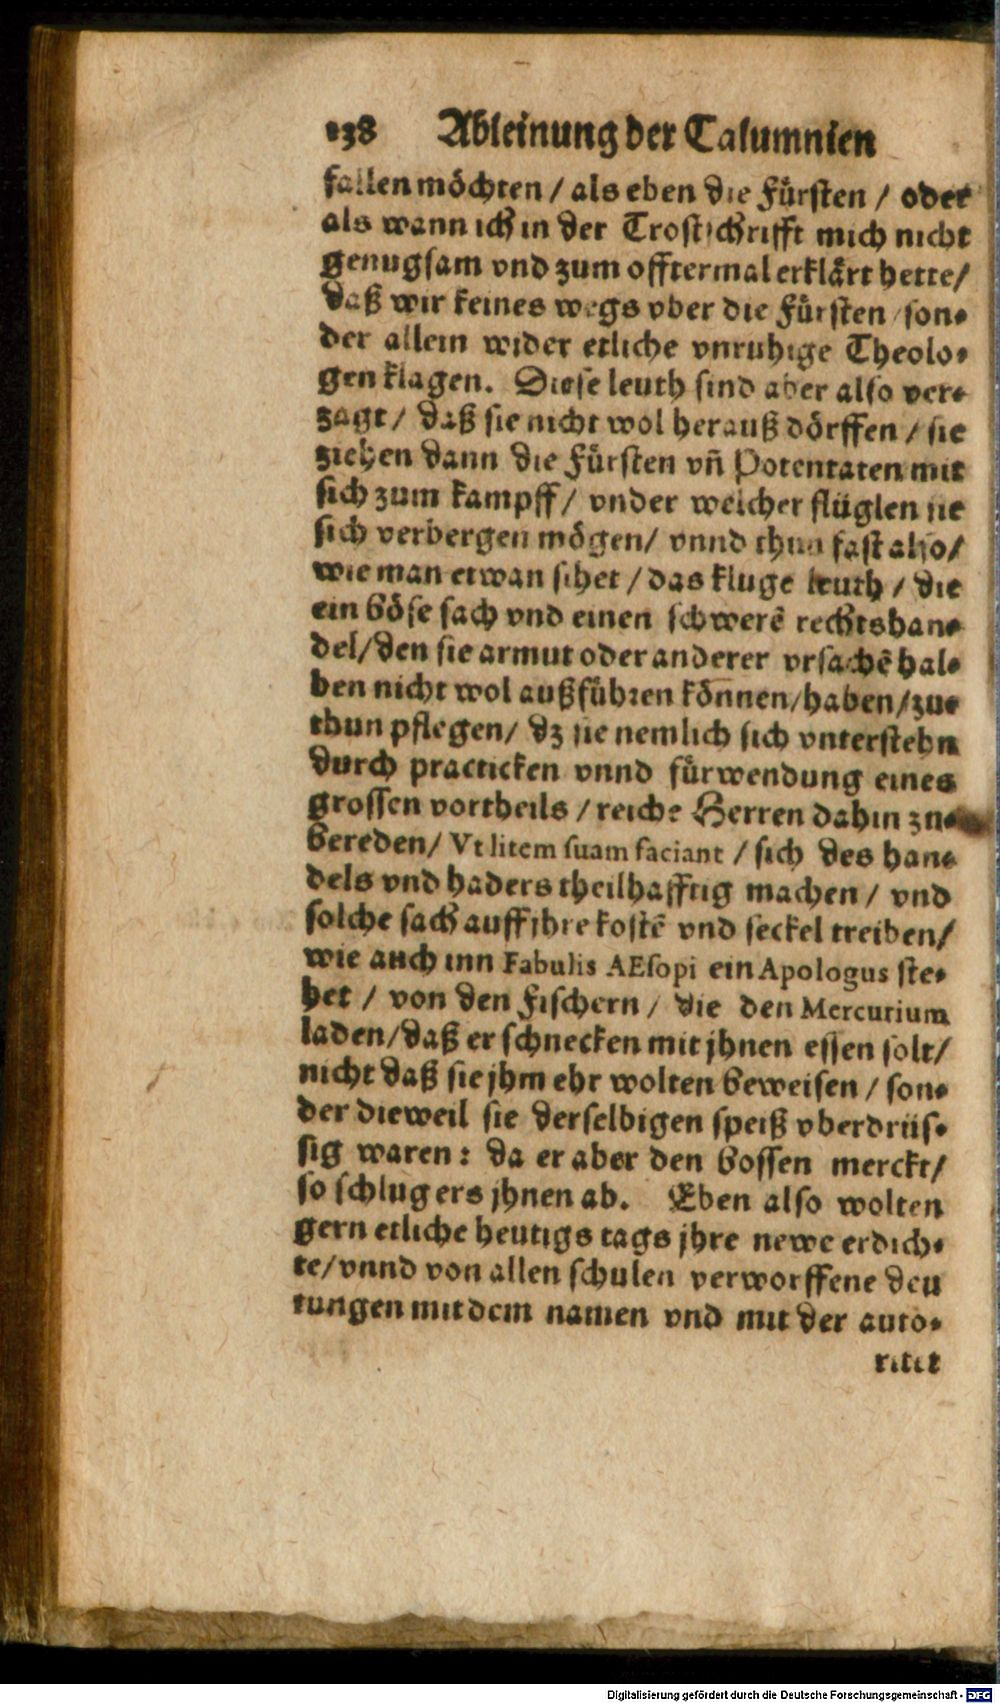 138 Ableinung der Calumnien
fallen möchten / als eben die Fürsten / oder
als wann ich in der Trostschrifft mich nicht
genugsam vnd zum offtermal erklärt hette/
daß wir keines wegs vber die Fürsten / son-
der allein wider etliche vnruhige Theolo-
gen klagen. Diese leuth sind aber also ver-
zagt / daß sie nicht wol herauß dörffen / sie
ziehen dann die Fürsten vñ Potentaten mit
sich zum kampff / vnder welcher flüglen sie
sich verbergen mögen / vnnd thun fast also /
wie man etwan sihet / das kluge leuth / die
ein böse sach vnd einen schwerē rechtshan-
del / den sie armut oder anderer vrsachē hal-
ben nicht wol außführen können / haben / zu-
thun pflegen / dz sie nemlich sich vnterstehn
durch practicken vnnd fürwendung eines
grossen vortheils / reiche Herren dahin zu-
bereden / Vt litem suam faciant / sich des han-
dels vnd haders theilhafftig machen / vnd
solche sach auff jhre kostē vnd seckel treiben /
wie auch inn Fabulis AEsopi ein Apologus ste-
het / von den Fischern / die den Mercurium
laden / daß er schnecken mit jhnen essen solt /
nicht daß sie jhm ehr wolten beweisen / son-
der dieweil sie derselbigen speiß vberdrüs-
sig waren : da er aber den bossen merckt /
so schlug ers jhnen ab. Eben also wolten
gern etliche heutigs tags jhre newe erdich-
te / vnnd von allen schulen verworffene deu
tungen mit dem namen vnd mit der auto-
ritet
Digitalisierung gefördert durch die Deutsche Forschungsgemeinschaft - DFG